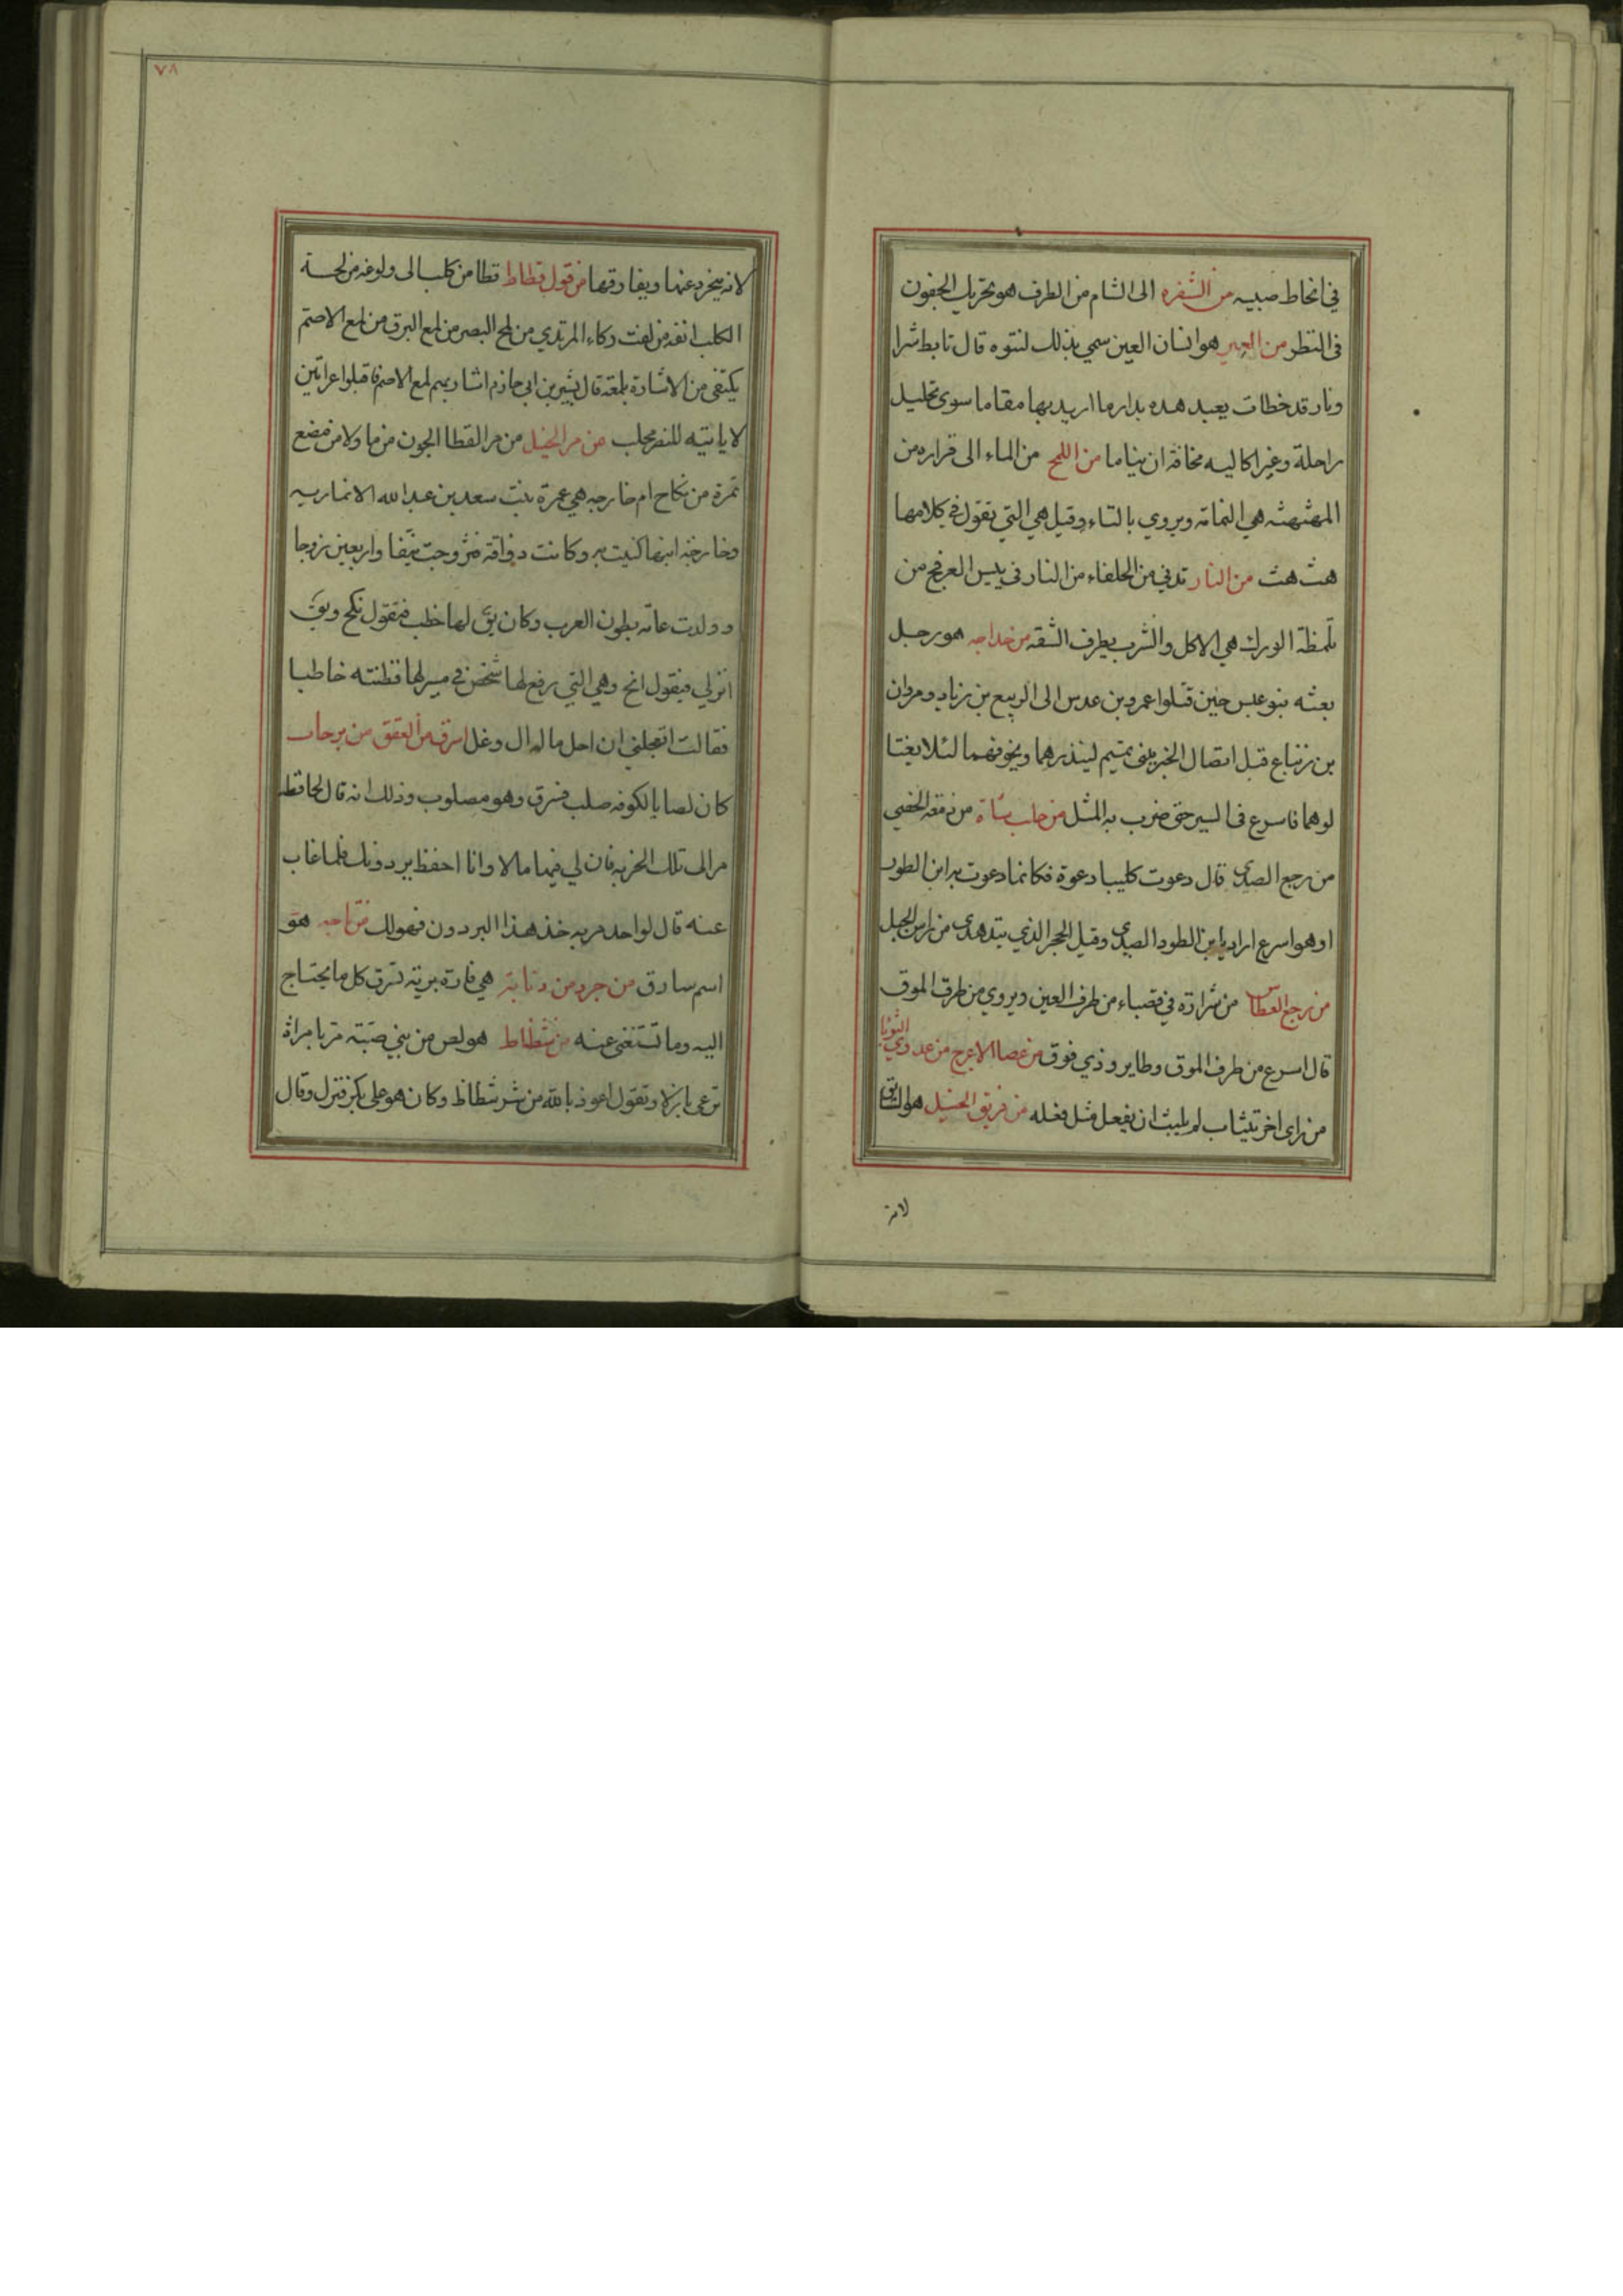 في انحاط صبيبه من الشفره الى الشام من الطرف هو تحريك الجفون
فى النظر من العير هو انسان العين سمي بذلك لنتوه قال تابط شرا
ونار قد خطات بعيد هده بدار ما اريد بها مقاما سوى تحليل
راحلة وغير اكاليه مخافة ان يناما من اللمح من الماء الى قراره من
المهثهثه هي النمامة ويروي بالتاء وقيل هي التي تقول في كلامها
هث هث من النار تدني من الحلفاء من النار فى يبيس العرفج من
تلمظة الورك هي الاكل والشرب بطرف الشفه من خداجه هو رجل
بعثه بنو عبس حين قتلوا عمرو بن عدس الى الربيع بن زياد ومروان
بن زنباع قبل اتصال الخبر ببنى تميم لينذرهما ويخوفهما لئلا يغتا
لوهما فاسرع فى السير حتى ضرب به المثل من حلب شاة من دمعة الخصي
من رجع الصدى قال دعوت كليبا دعوة فكانما دعوت به ابن الطود
او هو اسرع اراد بابن الطود الصدى وقيل الحجر الذي يتدهدى من راس الجبل
من رجع العطاس من شرارة في قصباء من طرف العين ويروي من طرف الموق
قال اسرع من طرف الموق وطاير وذي فوق من عصا الاعرج من عدوي الثوبا
من راى اخر يتثاب لم يلبث ان يفعل مثل فعله من فريق الخيل هو السابق
لانه
٧٨
لانه ينخرد عنها ويفارقها من قول قطاط قطا من كلب الى ولوغه من لحسة
الكلب انفه من لفت رداء المرتدي من لمح البصر من لمع البرق من لمع الاصم
يكتفى من الاشارة بلمعة قال بشير بن ابي حازم اشار بهم لمع الاصم فاقبلوا عرانين
لا ياتيه للنصر مجلب من مر الخيل من مر القطا الجون من ما ولا من مضغ
تمرة من نكاح ام خارجه هي عمرة بنت سعد بن عبد الله الانماريه
وخارجة ابنها كنيت به وكانت ذواقة فتزوجت نيفا واربعين زوجا
وولدت عامة بطون العرب وكان يق لها خطب فتقول نكح ويق
انزلي فيقول انخ وهي التي رفع لها شخص في مسيرلها فظنته خاطبا
فقالت اتعجلني ان احل ماله ال وغل اسرق من العقق من برجان
كان لصا بالكوفه صلب فسرق وهو مصلوب وذلك انه قال لحافظه
مر الى تلك الخربه فان لي فيها مالا وانا احفظ بردونك فلما غاب
عنه قال لواحد مر به خذ هذا البردون فهو لك من تاجه هو
اسم سارق من جرد من ذبابة هي فارة برية تسرق كل ما يحتاج
اليه وما تستغنى عنه من شظاظ هو لص من بني ضبة مر بامراة
ترعى بازلا وتقول اعوذ بالله من شر شظاظ وكان هو على بكر فنزل وقال